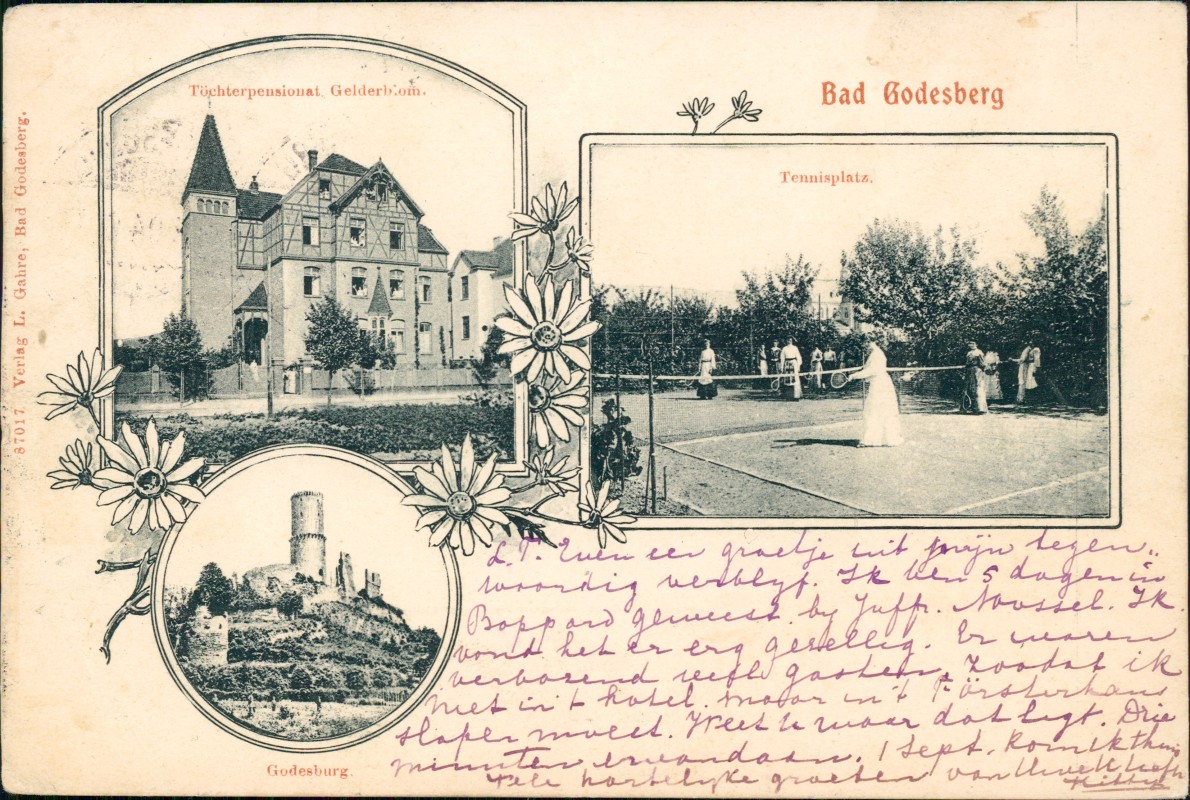 Töchterpensionat Gelderblom.
Bad Godesberg
Tennisplatz.
87017 Verlag L. Gahre, Bad Godesberg.
Godesburg.
L. T. Even een groetje uit mijn tegen„
woordig verblyf. Ik ben 5 dagen in
Boppard geweest. by Juffr. Noussel. Ik
vond het er erg gezellig. Er waren
verbazend veel gasten, zoodat ik
niet in 't hotel. maar in 't Försterhaus
slapen moest. Weet U waar dat ligt. Drie
minuten er vandaan. 1 Sept. kom ik thuis
Vele hartelyke groeten van Uwe